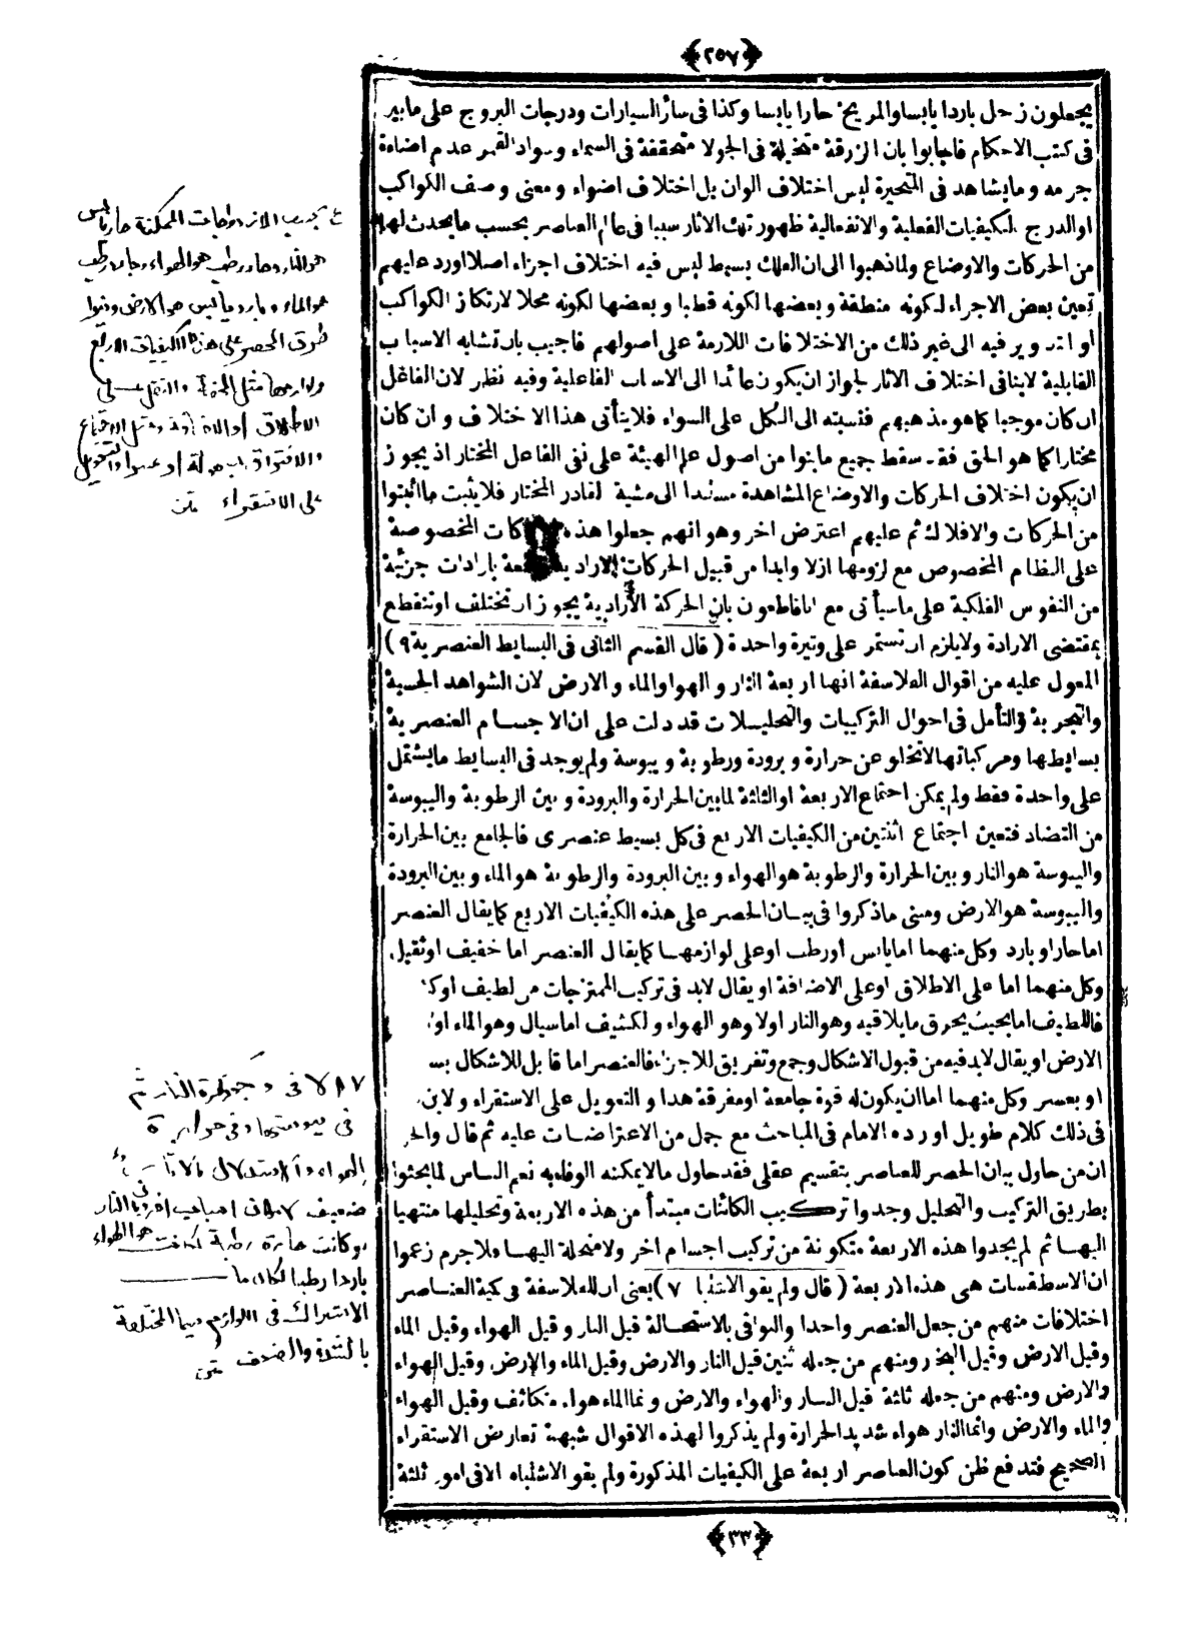 ﴿٢٥٧﴾
يجعلون زحل باردا يابسا والمريخ حارا يابسا وكذا فى سائر السيارات ودرجات البروج على ما بين
فى كتب الاحكام فاجابوا بان الزرقة متخيلة فى الجو لا متحققة فى السماء وسواد القمر عدم اضاءة
جرمه وما يشاهد فى المتحيرة ليس اختلاف الوان بل اختلاف اضواء ومعنى وصف الكواكب
او الدرج بالكيفيات الفعلية والانفعالية ظهور تلك الاثار سيما فى عالم العناصر بحسب ما يحدث لها
من الحركات والاوضاع ولما ذهبوا الى ان الفلك بسيط ليس فيه اختلاف اجزاء اصلا اورد عليهم
تعين بعض الاجزاء لكونه منطقة وبعضها لكونه قطبا وبعضها لكونه محلا لارتكاز الكواكب
او التدوير فيه الى غير ذلك من الاختلافات اللازمة على اصولهم فاجيب بان تشابه الاسباب
القابلية لا ينافى اختلاف الاثار لجواز ان يكون عائدا الى الاسباب الفاعلية وفيه نظر لان الفاعل
ان كان موجبا كما هو مذهبهم فنسبته الى الكل على السواء فلا يتأتى هذا الاختلاف وان كان
مختارا كما هو الحق فقد سقط جميع ما بنوا من اصول علم الهيئة على نفى الفاعل المختار اذ يجوز
ان يكون اختلاف الحركات والاوضاع المشاهدة مستندا الى مشية القادر المختار فلا يثبت ما اثبتوا
من الحركات والافلاك ثم عليهم اعتراض اخر وهو انهم جعلوا هذه كات المخصوصة
على النظام المخصوص مع لزومها ازلا وابدا من قبيل الحركات الارادية بارادات جزئية
من النفوس الفلكية على ما سيأتى مع انا قاطعون بان الحركة الارادية يجوز ان تختلف او تنقطع
بمقتضى الارادة ولا يلزم ان تستمر على وتيرة واحدة ( قال القسم الثانى فى البسايط العنصرية ٩ )
المعول عليه من اقوال الفلاسفة انها اربعة النار والهواء والماء والارض لان الشواهد الحسية
والتجربة والتأمل فى احوال التركيبات والتحليلات قد دلت على ان الاجسام العنصرية
بسايطها ومركباتها لا تخلو عن حرارة وبرودة ورطوبة ويبوسة ولم يوجد فى البسايط ما يشتمل
على واحدة فقط ولم يمكن اجتماع الاربعة او الثلثة لما بين الحرارة والبرودة وبين الرطوبة واليبوسة
من التضاد فتعين اجتماع اثنتين من الكيفيات الاربع فى كل بسيط عنصرى فالجامع بين الحرارة
واليبوسة هو النار وبين الحرارة والرطوبة هو الهواء وبين البرودة والرطوبة هو الماء وبين البرودة
واليبوسة هو الارض ومبنى ما ذكروا فى بيان الحصر على هذه الكيفيات الاربع كما يقال العنصر
اما حار او بارد وكل منهما اما يابس او رطب او على لوازمها كما يقال العنصر اما خفيف او ثقيل
وكل منهما اما على الاطلاق او على الاضافة او يقال لابد فى تركيب الممتزجات من لطيف او
فاللطيف اما بحيث يحرق ما يلاقيه وهو النار اولا وهو الهواء والكثيف اما سيال وهو الماء او
الارض او يقال لابد فيه من قبول الاشكال وجمع وتفريق للاجزاء فالعنصر اما قابل للاشكال
او بعسر وكل منهما اما ان يكون له قوة جامعة او مفرقة هذا والتعويل على الاستقراء
فى ذلك كلام طويل اورده الامام فى المباحث مع جمل من الاعتراضات عليه ثم قال
ان من حاول بيان الحصر للعناصر بتقسيم عقلى فقد حاول ما لا يمكنه الوفاء به نعم الناس لما بحثوا
بطريق التركيب والتحليل وجدوا تركيب الكائنات مبتدأ من هذه الاربعة وتحليلها منتهيا
اليها ثم لم يجدوا هذه الاربعة متكونة من تركيب اجسام اخر ولا منحلة اليها فلا جرم زعموا
ان الاسطقسات هى هذه الاربعة ( قال ولم يقو الاشتباه ٧ ) يعنى ان للفلاسفة فى كمية العناصر
اختلافات منهم من جعل العنصر واحدا والبواقى بالاستحالة قيل النار وقيل الهواء وقيل الماء
وقيل الارض وقيل البخار ومنهم من جعله ثنين قيل النار والارض وقيل الماء والارض وقيل الهواء
والارض ومنهم من جعله ثلثة قيل النار والهواء والارض وانما الماء هواء متكاثف وقيل الهواء
والماء والارض وانما النار هواء شديد الحرارة ولم يذكروا لهذه الاقوال شبهة تعارض الاستقراء
الصحيح فتدفع ظن كون العناصر اربعة على الكيفيات المذكورة ولم يقو الاشتباه الا فى امور ثلثة
﴿٣٣﴾
بحسب الازدواجات الممكنة حار يابس
هو النار وحار رطب هو الهواء وبارد رطب
هو الماء وبارد يابس هو الارض وبنوا
طرق الحصر على هذه الكيفيات الاربع
ولوازمها مثل الخفة والثقل على
الاطلاق او الاضافة ومثل الاجتماع
والافتراق بسهولة او عسر والتعويل
على الاستقراء متن
٧ الا فى وجود كرة النار ثم
فى يبوستها وفى حرارة
الهواء والاستدلال بالآثار
ضعيف
كانت حارة رطبة لكانت هو الهواء
باردا رطبا لكان ماء
الاشتراك فى اللوازم سيما المختلفة
بالشدة والضعف متن